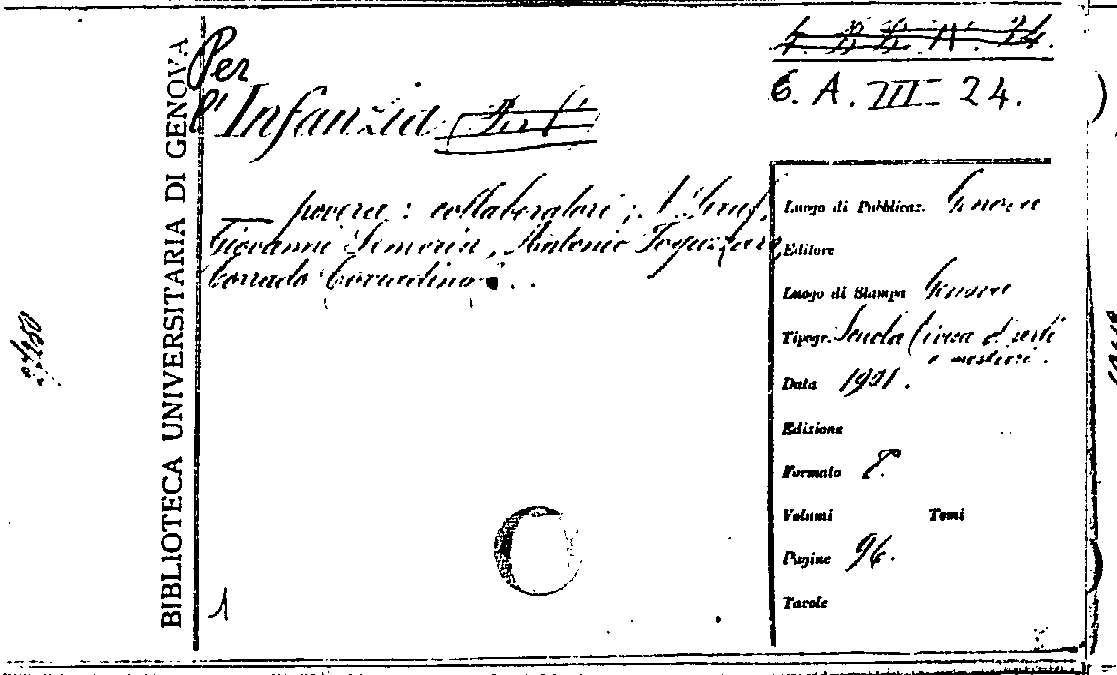 BIBLIOTECA UNIVERSITARIA DI GENOVA
Per
l'Infanzia
6. A. III 24.
povera : collaboratori ;
Giovanni Antonio
Corrado
1
Luogo di Pubblicaz. Genova
Editore
Luogo di Stampa Genova
Tipogr. Scuola Civica d'arti
e mestieri.
Data 1921.
Edizione
Formato 8.
Volumi Tomi
Pagine 96.
Tavole